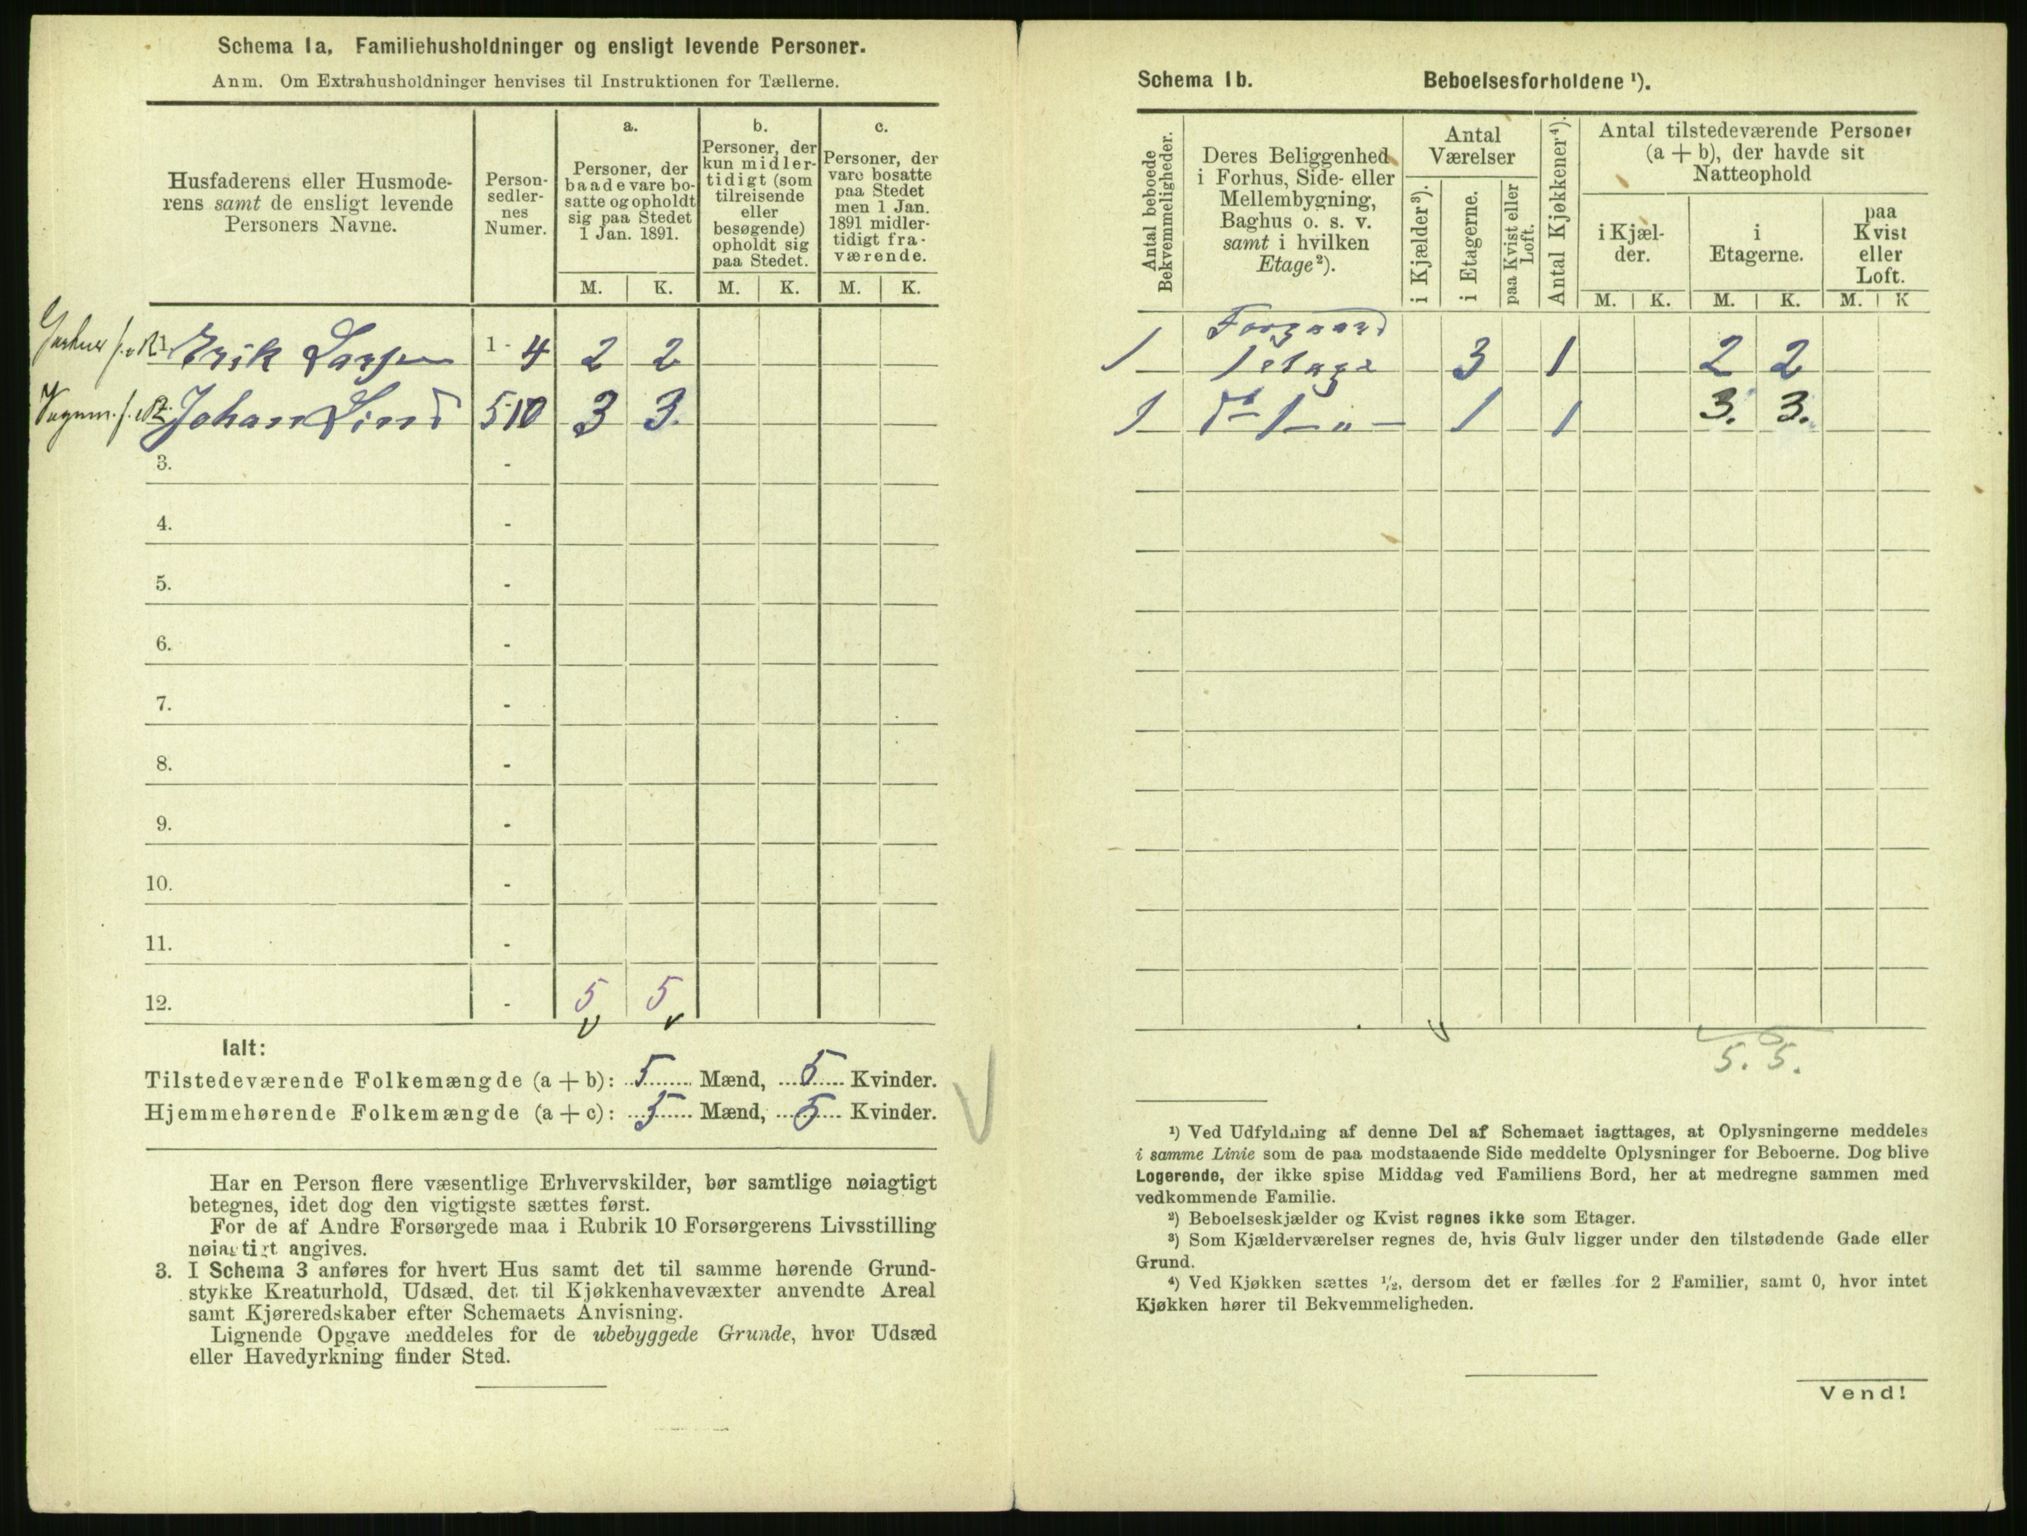 Schema 1a. Familiehusholdninger og ensligt levende Personer.
Anm. Om Extrahusholdninger henvises til Instruktionen for Tællerne.
Husfaderens eller Husmode-
rens samt de ensligt levende
Personers Navne.
Person-
sedler-
nes
Numer.
a.
Personer, der
baade vare bo-
satte og opholdt
sig paa Stedet
1 Jan. 1891.
b.
Personer, der
kun midler-
tidigt (som
tilreisende
eller
besøgende)
opholdt sig
paa Stedet.
c.
Personer, der
vare bosatte
paa Stedet
men 1 Jan.
1891 midler-
tidigt fra-
værende.
M. K. M. K. M. K.
1. Erik Larsen 1 - 4 2 2
Johan Lind 5-10 3 3.
3. -
4. -
5. -
6. -
7. -
8. -
9. -
10. -
11. -
12. - 5 5
Ialt:
Tilstedeværende Folkemængde (a + b): 5 Mænd, 5 Kvinder.
Hjemmehørende Folkemængde (a + c): 5 Mænd, 5 Kvinder.
Har en Person flere væsentlige Erhvervskilder, bør samtlige nøiagtigt
betegnes, idet dog den vigtigste sættes først.
For de af Andre Forsørgede maa i Rubrik 10 Forsørgerens Livsstilling
nøiagtigt angives.
3. I Schema 3 anføres for hvert Hus samt det til samme hørende Grund-
stykke Kreaturhold, Udsæd, det til Kjøkkenhavevæxter anvendte Areal
samt Kjøreredskaber efter Schemaets Anvisning.
Lignende Opgave meddeles for de ubebyggede Grunde, hvor Udsæd
eller Havedyrkning finder Sted.
Schema 1b. Beboelsesforholdene ¹).
Antal beboede
Bekvemmeligheder.
Deres Beliggenhed
i Forhus, Side- eller
Mellembygning,
Baghus o. s. v.
samt i hvilken
Etage²).
Antal
Værelser
i Kjælder³).
i Etagerne.
paa Kvist eller
Loft.
Antal Kjøkkener⁴).
Antal tilstedeværende Personer
(a + b), der havde sit
Natteophold
i Kjæl-
der.
i
Etagerne.
paa
Kvist
eller
Loft.
M. K. M. K. M. K
Forgaard
1 1 etage 3 1 2 2
1 1 - „ - 1 1 3. 3.
5. 5.
¹) Ved Udfyldning af denne Del af Schemaet iagttages, at Oplysningerne meddeles
i samme Linie som de paa modstaaende Side meddelte Oplysninger for Beboerne. Dog blive
Logerende, der ikke spise Middag ved Familiens Bord, her at medregne sammen med
vedkommende Familie.
²) Beboelseskjælder og Kvist regnes ikke som Etager.
³) Som Kjælderværelser regnes de, hvis Gulv ligger under den tilstødende Gade eller
Grund.
⁴) Ved Kjøkken sættes ½, dersom det er fælles for 2 Familier, samt 0, hvor intet
Kjøkken hører til Bekvemmeligheden.
Vend!